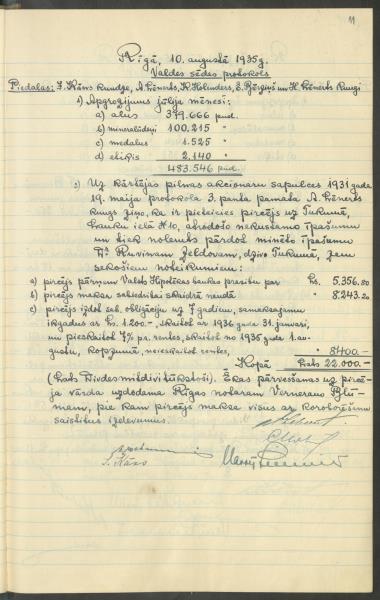 11
Rīgā, 10. augustā 1935g.
Valdes sēdes protokols
Piedalās: J. Kāns kundze, A. Lēnerts, K. Holanders, E. un H. Lēnerts kungi
1) Apgrozījums jūlija mēnesī:
a) alus 379.666 pud.
b) mineralūdeņi 100.215 "
c) medalus 1.525 "
d) eliķis 2.140 "
483.546 pud.
2) Uz kārtējās pilnas akcionaru sapulces 1931 gada
19. maija protokola 3. panta pamata A. Lēnerts
kungs ziņo, ka ir pieteicies pircējs uz Tukumā,
Lauku ielā № 10, atrodošo nekustamo īpašumu
un tiek nolemts pārdot minēto īpašumu
Jeldovam, dzīvo Tukumā, zem
sekošiem noteikumiem:
a) pircējs pārņem Valsts Hipotekas bankas prasību par Ls. 5.356.80
b) pircējs maksā sabiedrībai skaidrā naudā " 8.243.20
c) pircējs izdot sab. obligāciju uz 7 gadiem, samaksājamu
ikgadus ar Ls. 1.200.-, skaitot ar 1936 gada 31. janvāri,
un pieskaitot 7% par. rentes, skaitot no 1935 gada 1. au-
gustu, kopsumā, neieskaitot rentes, " 8400.-
Kopā Lats 22.000.-
(Lats Divdesmitdivi tūkstoši). Ēkas pārvešanas uz pircē-
ja vārda uzdodama Rīgas notaram Verneram
mam, pie kam pircējs maksā visus ar korroborēšanu
saistītus izdevumus.
J. Kāns